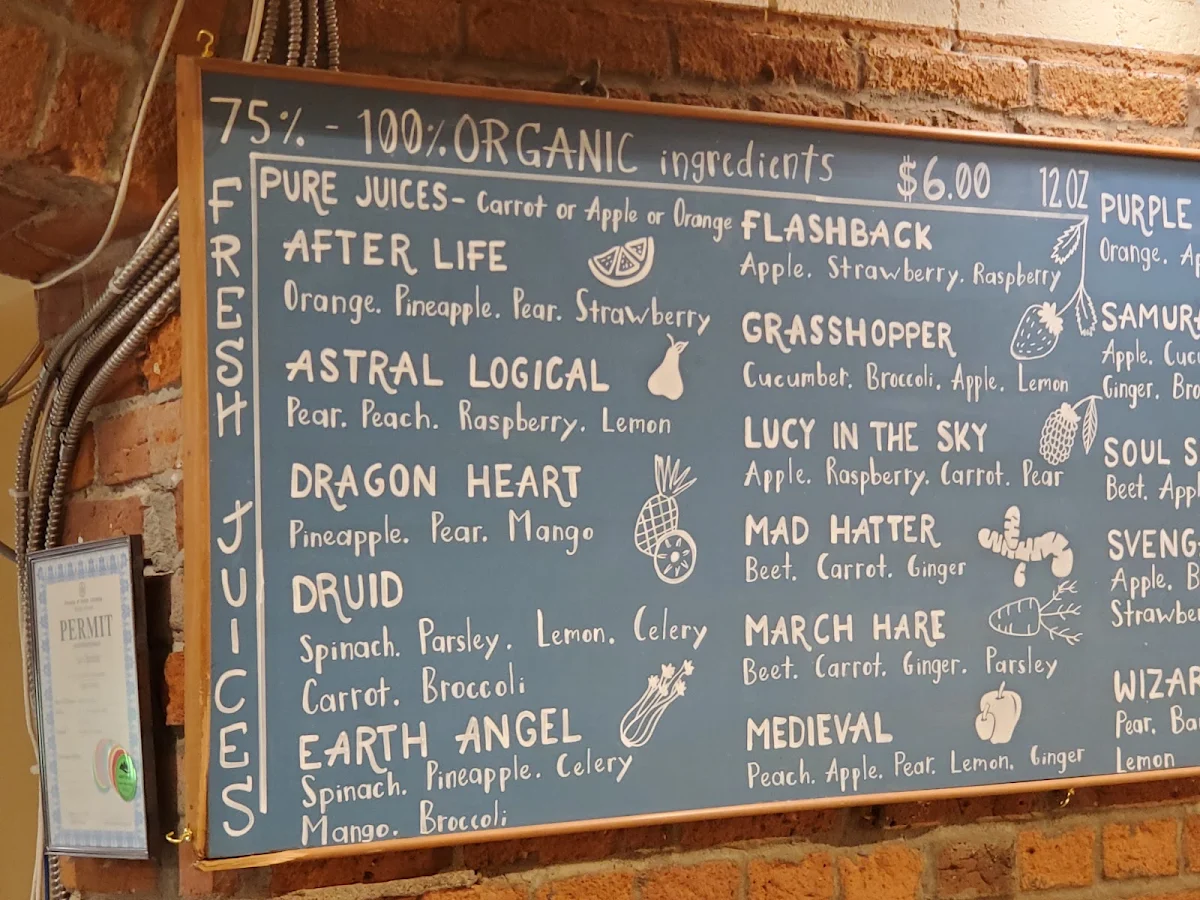 75% - 100% ORGANIC ingredients $6.00 12OZ
FRESH JUICES
PURE JUICES - Carrot or Apple or Orange
AFTER LIFE
Orange. Pineapple. Pear. Strawberry
ASTRAL LOGICAL
Pear. Peach. Raspberry. Lemon
DRAGON HEART
Pineapple. Pear. Mango
DRUID
Spinach. Parsley. Lemon. Celery
Carrot. Broccoli
EARTH ANGEL
Spinach. Pineapple. Celery
Mango. Broccoli
FLASHBACK
Apple. Strawberry. Raspberry
GRASSHOPPER
Cucumber. Broccoli. Apple. Lemon
LUCY IN THE SKY
Apple. Raspberry. Carrot. Pear
MAD HATTER
Beet. Carrot. Ginger
MARCH HARE
Beet. Carrot. Ginger. Parsley
MEDIEVAL
Peach. Apple. Pear. Lemon. Ginger
PURPLE
Orange. Ap
SAMURA
Apple. Cuc
Ginger. Bro
SOUL S
Beet. App
SVENG
Apple. B
Strawber
WIZAR
Pear. Ba
Lemon
PERMIT